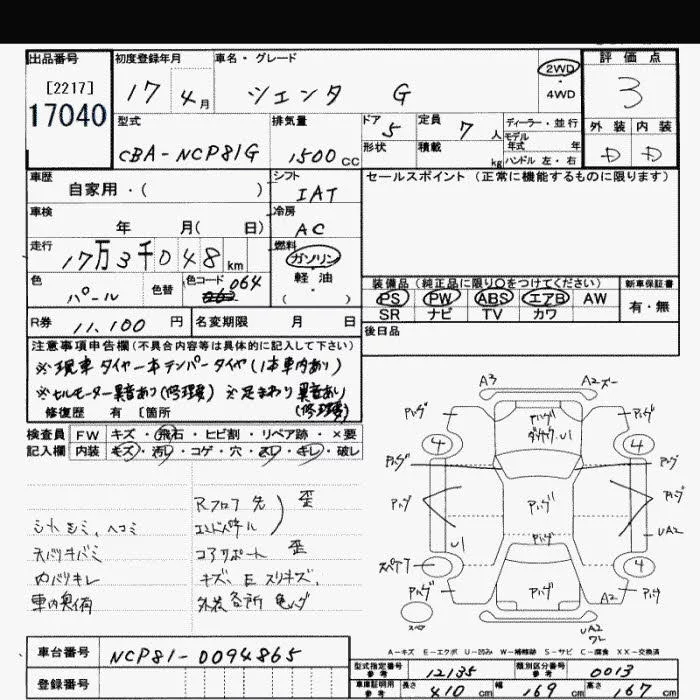 出品番号 初度登録年月 車名・グレード 2WD 評価点
[2217] 17 4月 シエンタ G 4WD 3
17040 型式 排気量 ドア 5 定員 7人 ディーラー・並行 外装 内装
CBA-NCP81G 1500cc 形状 積載 kg モデル年式 年 D D
ハンドル 左・右
車歴 シフト セールスポイント(正常に機能するものに限ります)
自家用・( ) IAT
車検 冷房
年 月( 日) AC
走行 燃料
17万3千048km ガソリン
色 色替 色コード 064 軽油
パール ( )
装備品(純正品に限り○をつけてください) 新車保証書
PS PW ABS エアB AW 有・無
SR ナビ TV カワ
R券 11,100円 名変期限 月 日 後日品
注意事項申告欄(不具合内容等は具体的に記入して下さい)
※現車タイヤ一本テンパータイヤ(1本車内あり)
※セルモーター異音あり(修理要) ※足まわり異音あり
修復歴 有 [箇所 (修理要)
検査員 FW キズ・飛石・ヒビ割・リペア跡・×要
記入欄 内装 キズ・汚レ・コゲ・穴・スレ・キレ・破レ
A3 A2
4 U1 4
Rフロア先 歪
シートシミ、ヘコミ エンドパネル
コアサポート 歪
U1 UA2
内バリキレ キズ、E スリキズ、 4 A2
スペア UA2
A-キズ E-エクボ U-凹み W-補修跡 S-サビ C-腐食 XX-交換済
車台番号 NCP81-0094865
型式指定番号 参考 12135 類別区分番号 参考 0013
登録番号 車庫証明用 参考 長さ 410cm 幅 169cm 高さ 167cm